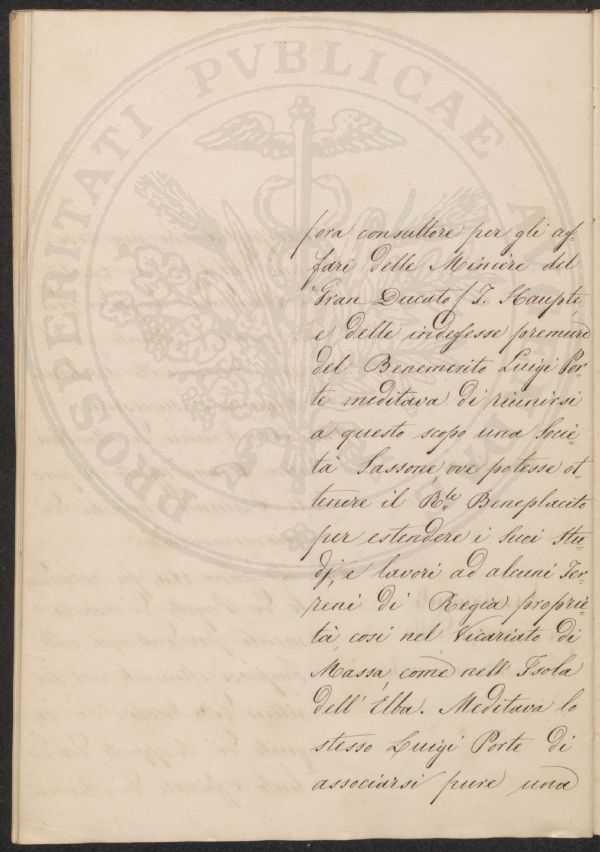 PROSPERITATI PVBLICAE
fora consultore per gli af-
fari delle Miniere del
Gran Ducato / T. Haupt
e delle indefesse premure
del Benemerito Luigi Por-
te meditava di riunirsi
a questo scopo una Socie-
tà Sassone, ove potesse ot-
tenere il R.le Beneplacito
per estendere i suoi Stu-
dj, e lavori ad alcuni Ter-
reni di Regia proprie-
tà, così nel Vicariato di
Massa, come nell' Isola
dell' Elba. Meditava lo
stesso Luigi Porte di
associarsi pure una